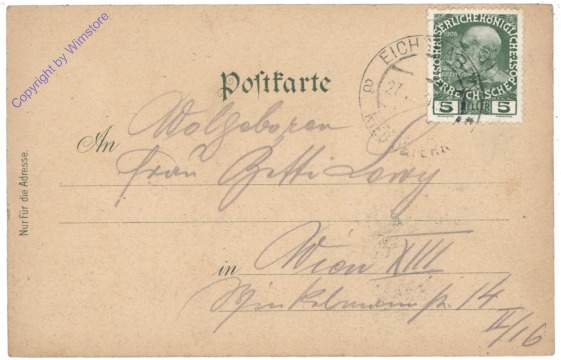 Copyright by Wimstore
Postkarte
1908
KAISERLICHE KÖNIGLICHE
ÖSTERREICHISCHE
5 HELLER 5
EICH
27
8
An Wolgeboren
Frau Betti Lowy
in Wien XIII
Winkelmannstr. 14
II/16
Nur für die Adresse.